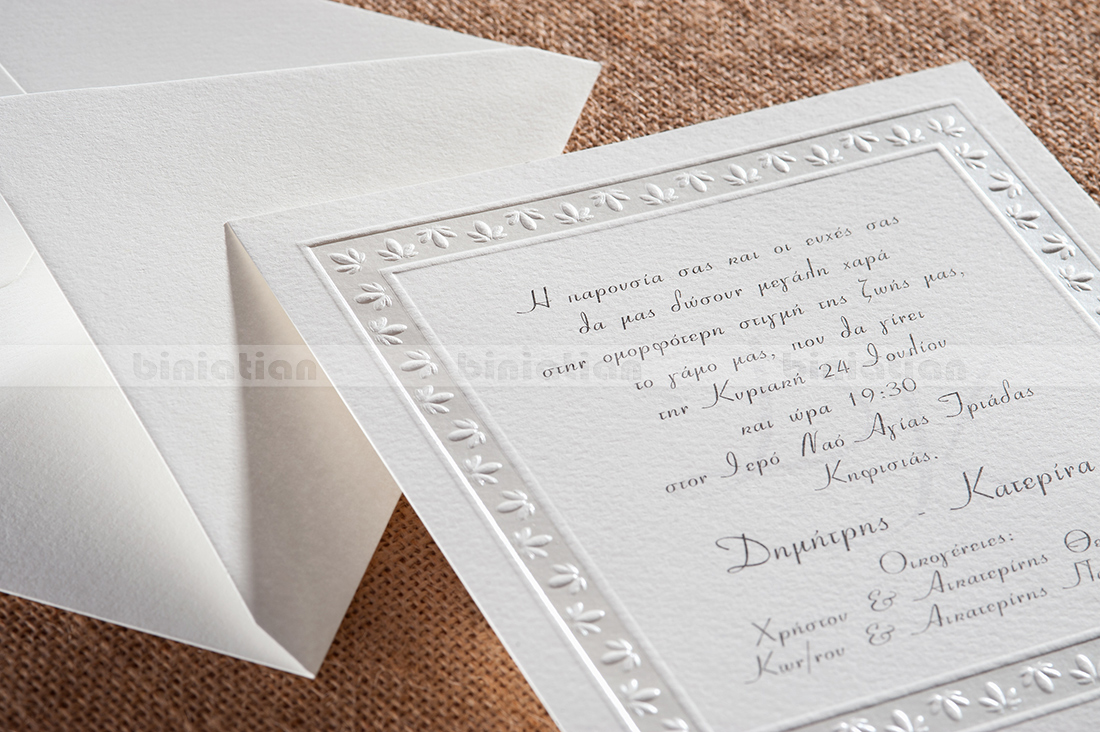 biniatian biniatian biniatian
Η παρουσία σας και οι ευχές σας
θα μας δώσουν μεγάλη χαρά
στην ομορφότερη στιγμή της ζωής μας,
το γάμο μας, που θα γίνει
την Κυριακή 24 Ιουλίου
και ώρα 19:30
στον Ιερό Ναό Αγίας Τριάδας
Κηφισιάς.
Δημήτρης - Κατερίνα
Οικογένειες:
Χρήστου & Αικατερίνης
Κων/νου & Αικατερίνης